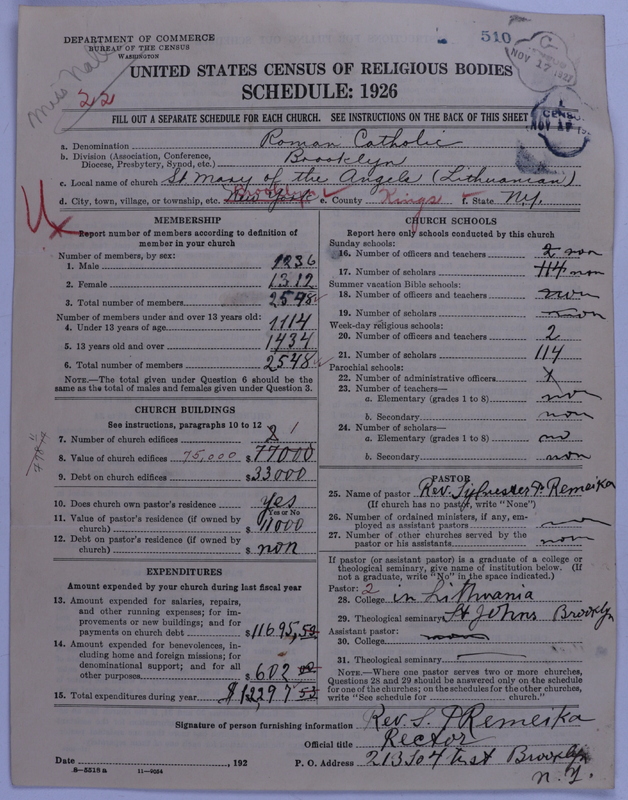 DEPARTMENT OF COMMERCE
BUREAU OF THE CENSUS
WASHINGTON
510
NOV 17 192
CENSUS
NOV 17 192
22
UNITED STATES CENSUS OF RELIGIOUS BODIES
SCHEDULE: 1926
FILL OUT A SEPARATE SCHEDULE FOR EACH CHURCH. SEE INSTRUCTIONS ON THE BACK OF THIS SHEET
a. Denomination Roman Catholic
b. Division (Association, Conference, Diocese, Presbytery, Synod, etc.) Brooklyn
c. Local name of church St Mary of the Angels (Lithuanian)
d. City, town, village, or township, etc. New York Brooklyn e. County Kings f. State N.Y.
MEMBERSHIP
Report number of members according to definition of
member in your church
Number of members, by sex:
1. Male 1236
2. Female 1312
3. Total number of members 2548
Number of members under and over 13 years old:
4. Under 13 years of age 1114
5. 13 years old and over 1434
6. Total number of members 2548
NOTE.—The total given under Question 6 should be the
same as the total of males and females given under Question 3.
CHURCH BUILDINGS
See instructions, paragraphs 10 to 12
7. Number of church edifices 2 1
8. Value of church edifices 75,000 $77000
9. Debt on church edifices $33000
10. Does church own pastor's residence yes
Yes or No
11. Value of pastor's residence (if owned by
church) $11000
12. Debt on pastor's residence (if owned by
church) $ non
EXPENDITURES
Amount expended by your church during last fiscal year
13. Amount expended for salaries, repairs,
and other running expenses; for im-
provements or new buildings; and for
payments on church debt $11695,53
14. Amount expended for benevolences, in-
cluding home and foreign missions; for
denominational support; and for all
other purposes $602 00
15. Total expenditures during year $12297 53
CHURCH SCHOOLS
Report here only schools conducted by this church
Sunday schools:
16. Number of officers and teachers 2 non
17. Number of scholars 114 non
Summer vacation Bible schools:
18. Number of officers and teachers non
19. Number of scholars non
Week-day religious schools:
20. Number of officers and teachers 2
21. Number of scholars 114
Parochial schools:
22. Number of administrative officers x
23. Number of teachers—
a. Elementary (grades 1 to 8) non
b. Secondary non
24. Number of scholars—
a. Elementary (grades 1 to 8) no
b. Secondary non
PASTOR
25. Name of pastor Rev. Sylvester J. Remeika
(If church has no pastor, write "None")
26. Number of ordained ministers, if any, em-
ployed as assistant pastors non
27. Number of other churches served by the
pastor or his assistants non
If pastor (or assistant pastor) is a graduate of a college or
theological seminary, give name of institution below. (If
not a graduate, write "No" in the space indicated.)
Pastor: 2
28. College in Lithwania
29. Theological seminary St Johns Brooklyn
Assistant pastor:
30. College non
31. Theological seminary
NOTE.—Where one pastor serves two or more churches,
Questions 28 and 29 should be answered only on the schedule
for one of the churches; on the schedules for the other churches,
write "See schedule for church."
Signature of person furnishing information Rev. S. J. Remeika
Official title Rector
Date , 192 P. O. Address 213 So 4th st Brooklyn
N.Y.
8-5518 a 11-9054